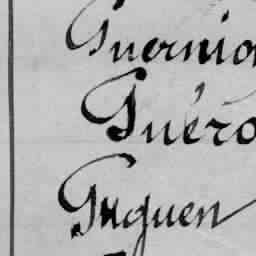 Guernio
Guéro
Guguen